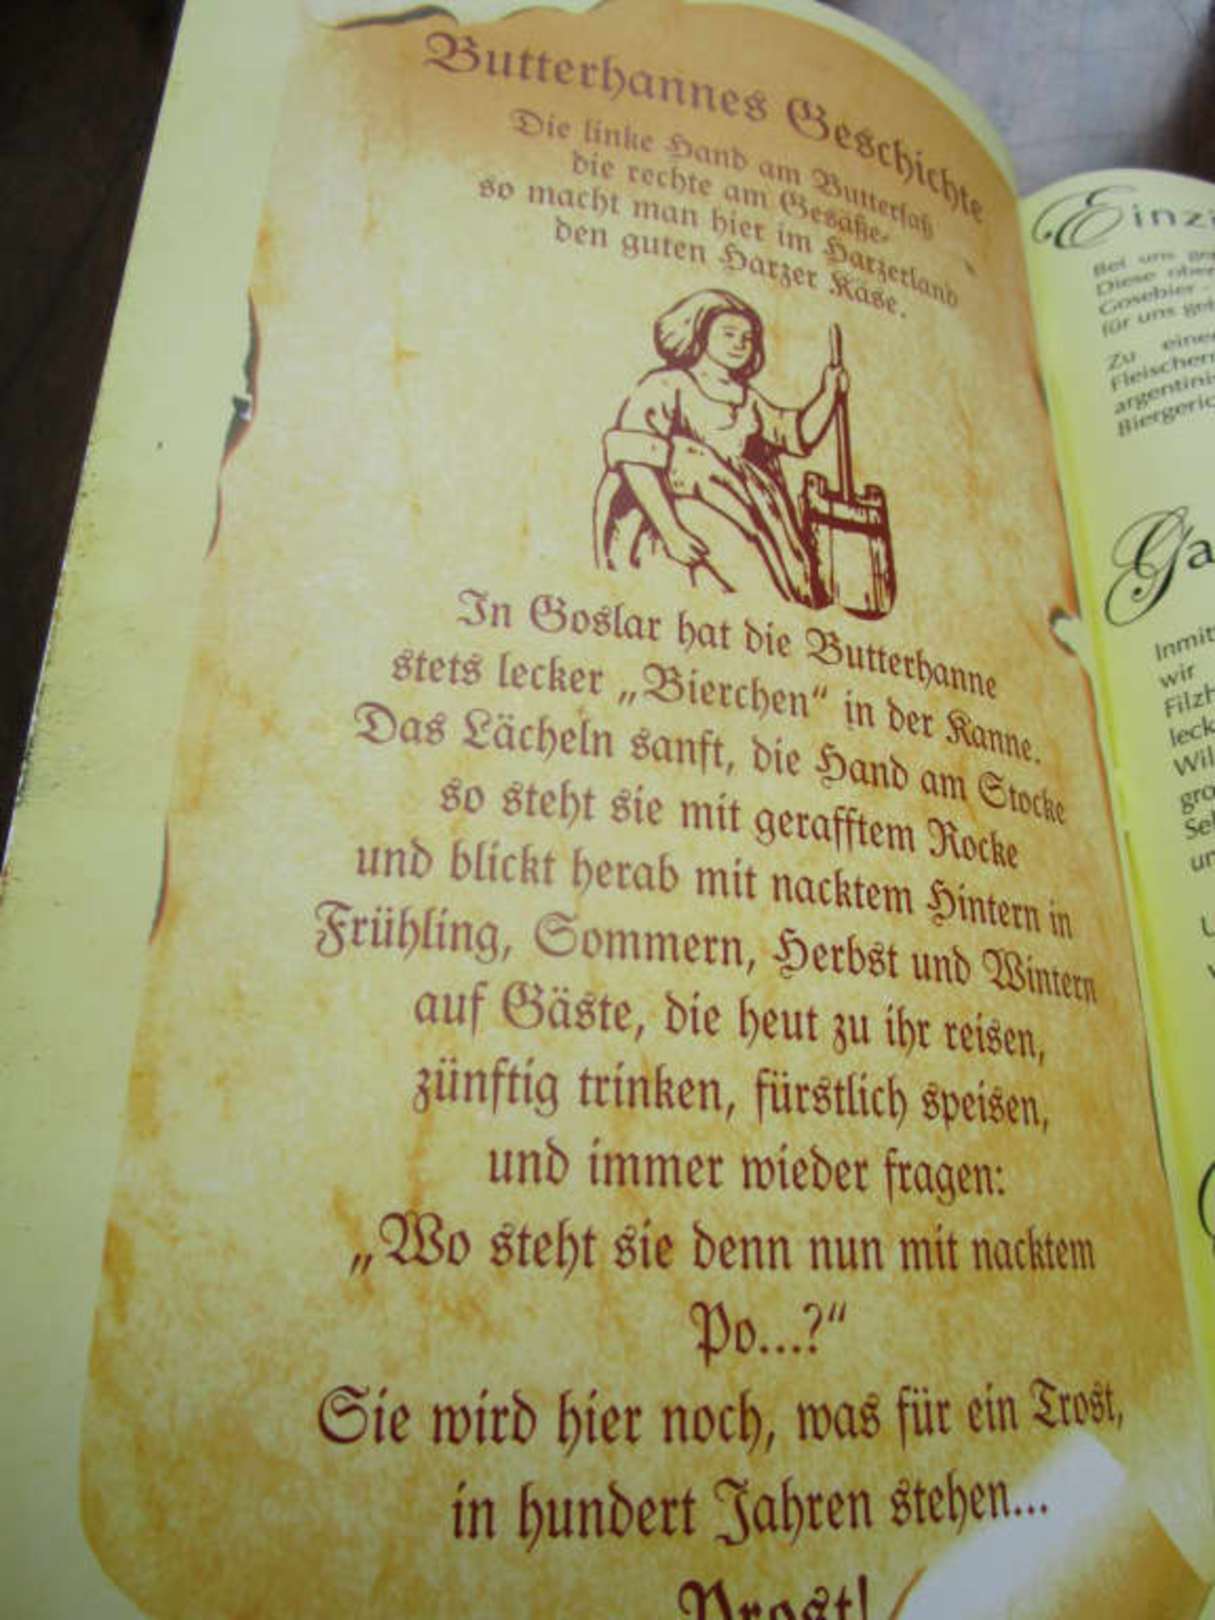 Butterhannes Geschichte
Die linke Hand am Butterfaß
die rechte am Gesäße-
so macht man hier im Harzerland
den guten Harzer Käse.
In Goslar hat die Butterhanne
stets lecker „Bierchen“ in der Kanne.
Das Lächeln sanft, die Hand am Stocke
so steht sie mit gerafftem Rocke
und blickt herab mit nacktem Hintern in
Frühling, Sommern, Herbst und Wintern
auf Gäste, die heut zu ihr reisen,
zünftig trinken, fürstlich speisen,
und immer wieder fragen:
„Wo steht sie denn nun mit nacktem
Po...?“
Sie wird hier noch, was für ein Trost,
in hundert Jahren stehen...
Prost!
Einzi
Bei uns
Diese
Gosebier -
für uns
Zu eine
Fleischer
argentini
Biergeric
Ga
Inmit
wir
Filzh
leck
Wil
gro
Sel
un